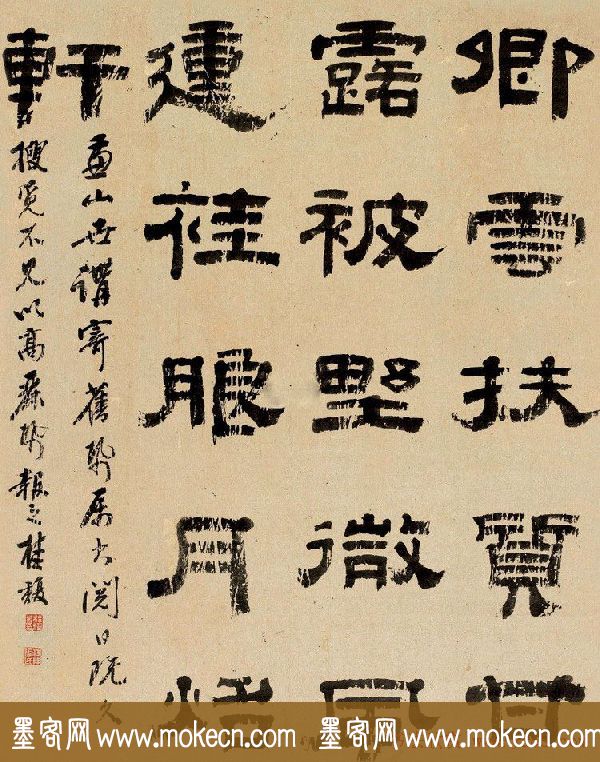 卿雲扶質甘
露被野徽風
運袿朗月
軒
山世講寄舊紙屬書閱日既久
搜覓不見以高麗紙報之桂馥
墨客网 www.mokecn.com 墨客网 www.mokecn.com